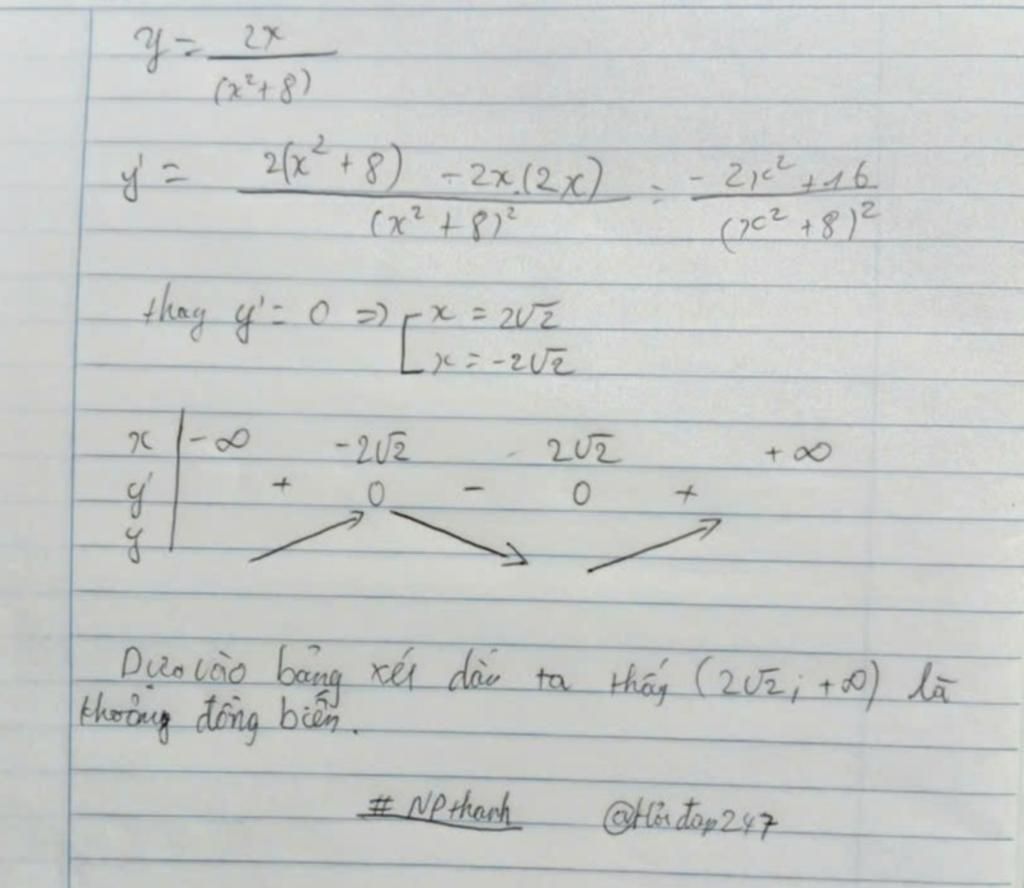 y = 2x / (x² + 8)
y' = 2(x² + 8) - 2x.(2x) / (x² + 8)² = -2x² + 16 / (x² + 8)²
thay y' = 0 => [ x = 2√2
x = -2√2
x | -∞ -2√2 2√2 +∞
y' + 0 - 0 +
y
Dựa vào bảng xét dấu ta thấy (2√2; +∞) là
khoảng đồng biến.
# NPthanh @Hỏi đáp247